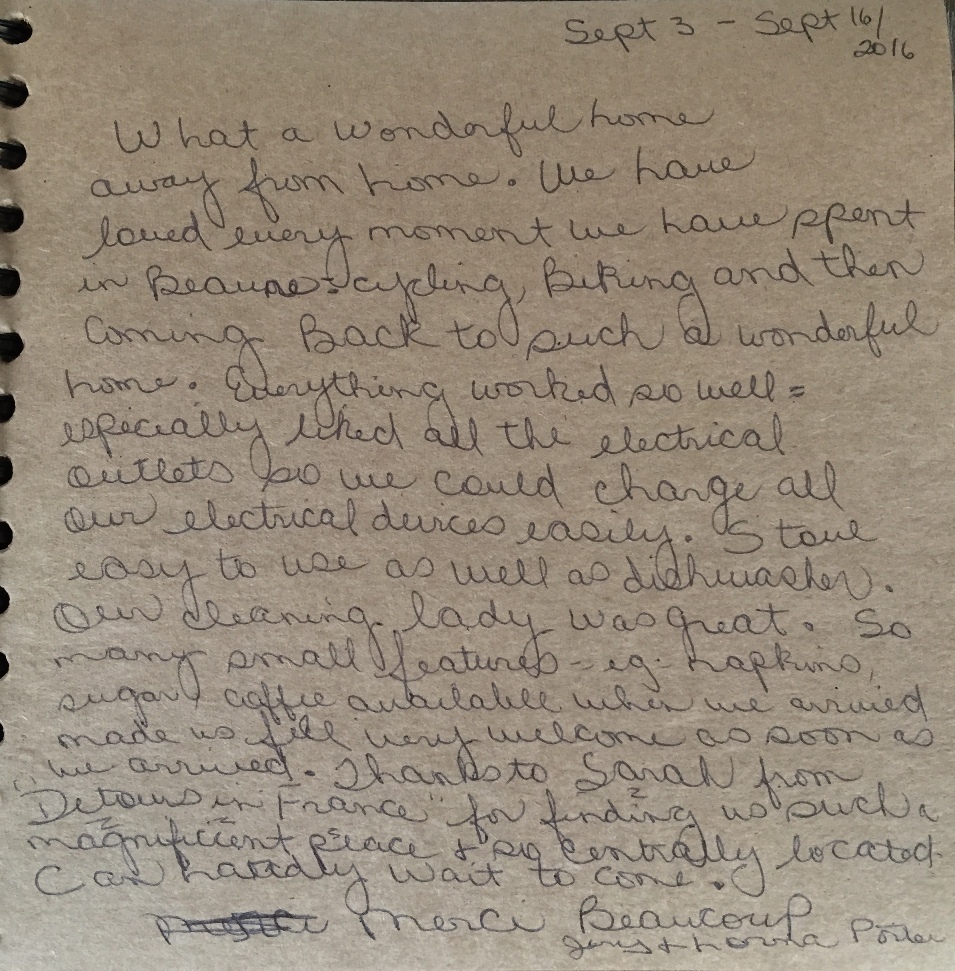 Sept 3 - Sept 16/
2016
What a wonderful home
away from home. We have
loved every moment we have spent
in Beaune: cycling, Biking and then
Coming Back to such a wonderful
home. Everything worked so well =
especially liked all the electrical
outlets so we could charge all
our electrical devices easily. Stove
easy to use as well as dishwasher.
Our cleaning lady was great. So
many small features - eg. napkins,
sugar, coffee available when we arrived
made us feel very welcome as soon as
we arrived. Thanks to Sarah from
"Detours in France" for finding us such a
magnificient place + so centrally located.
Can hardly wait to come.
Merci Beaucoup
+ Lorna Porter